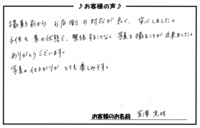 ♪お客様の声♪
撮影前から お店側の対応が良く、安心しました。
子供も 素の状態で、緊張することなく 写真を撮ることが出来ました。
ありがとうございます。
写真の仕上がりが とても楽しみです。
お客様のお名前